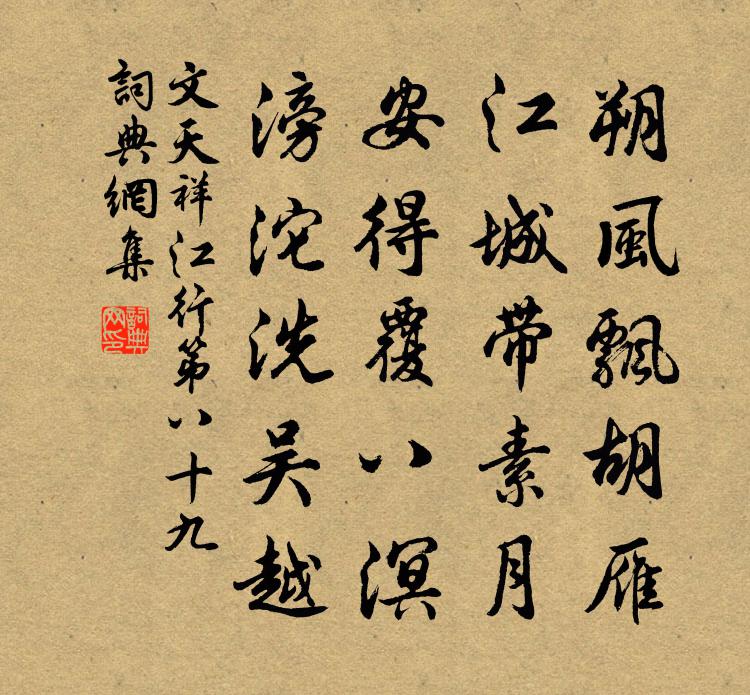 朔風飄胡雁
江城带素月
安得覆八溟
滂沱洗吴越
文天祥江行第八十九
詞典網集
詞典网印